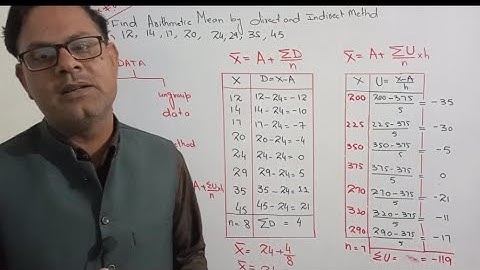 Find Arithmetic Mean by direct and Indirect Methd
12, 14, 17, 20, 24, 29, 35, 45
DATA
ungroup
data
X̄ = A + ΣD/n
X D=X-A
12 12-24=-12
14 14-24=-10
17 17-24=-7
20 20-24=-4
24 24-24=0
29 29-24=5
35 35-24=11
45 45-24=21
n=8 ΣD = 4
X̄ = 24+4/8
X̄ = A+ ΣU/n xh
X U= X-A/h
200 200-375/5 = -35
225 225-375/5 = -30
350 350-375/5 = -5
375 375-375/5 = 0
270 270-375/5 = -21
320 320-375/5 = -11
290 290-375/5 = -17
n=7 ΣU= = -119